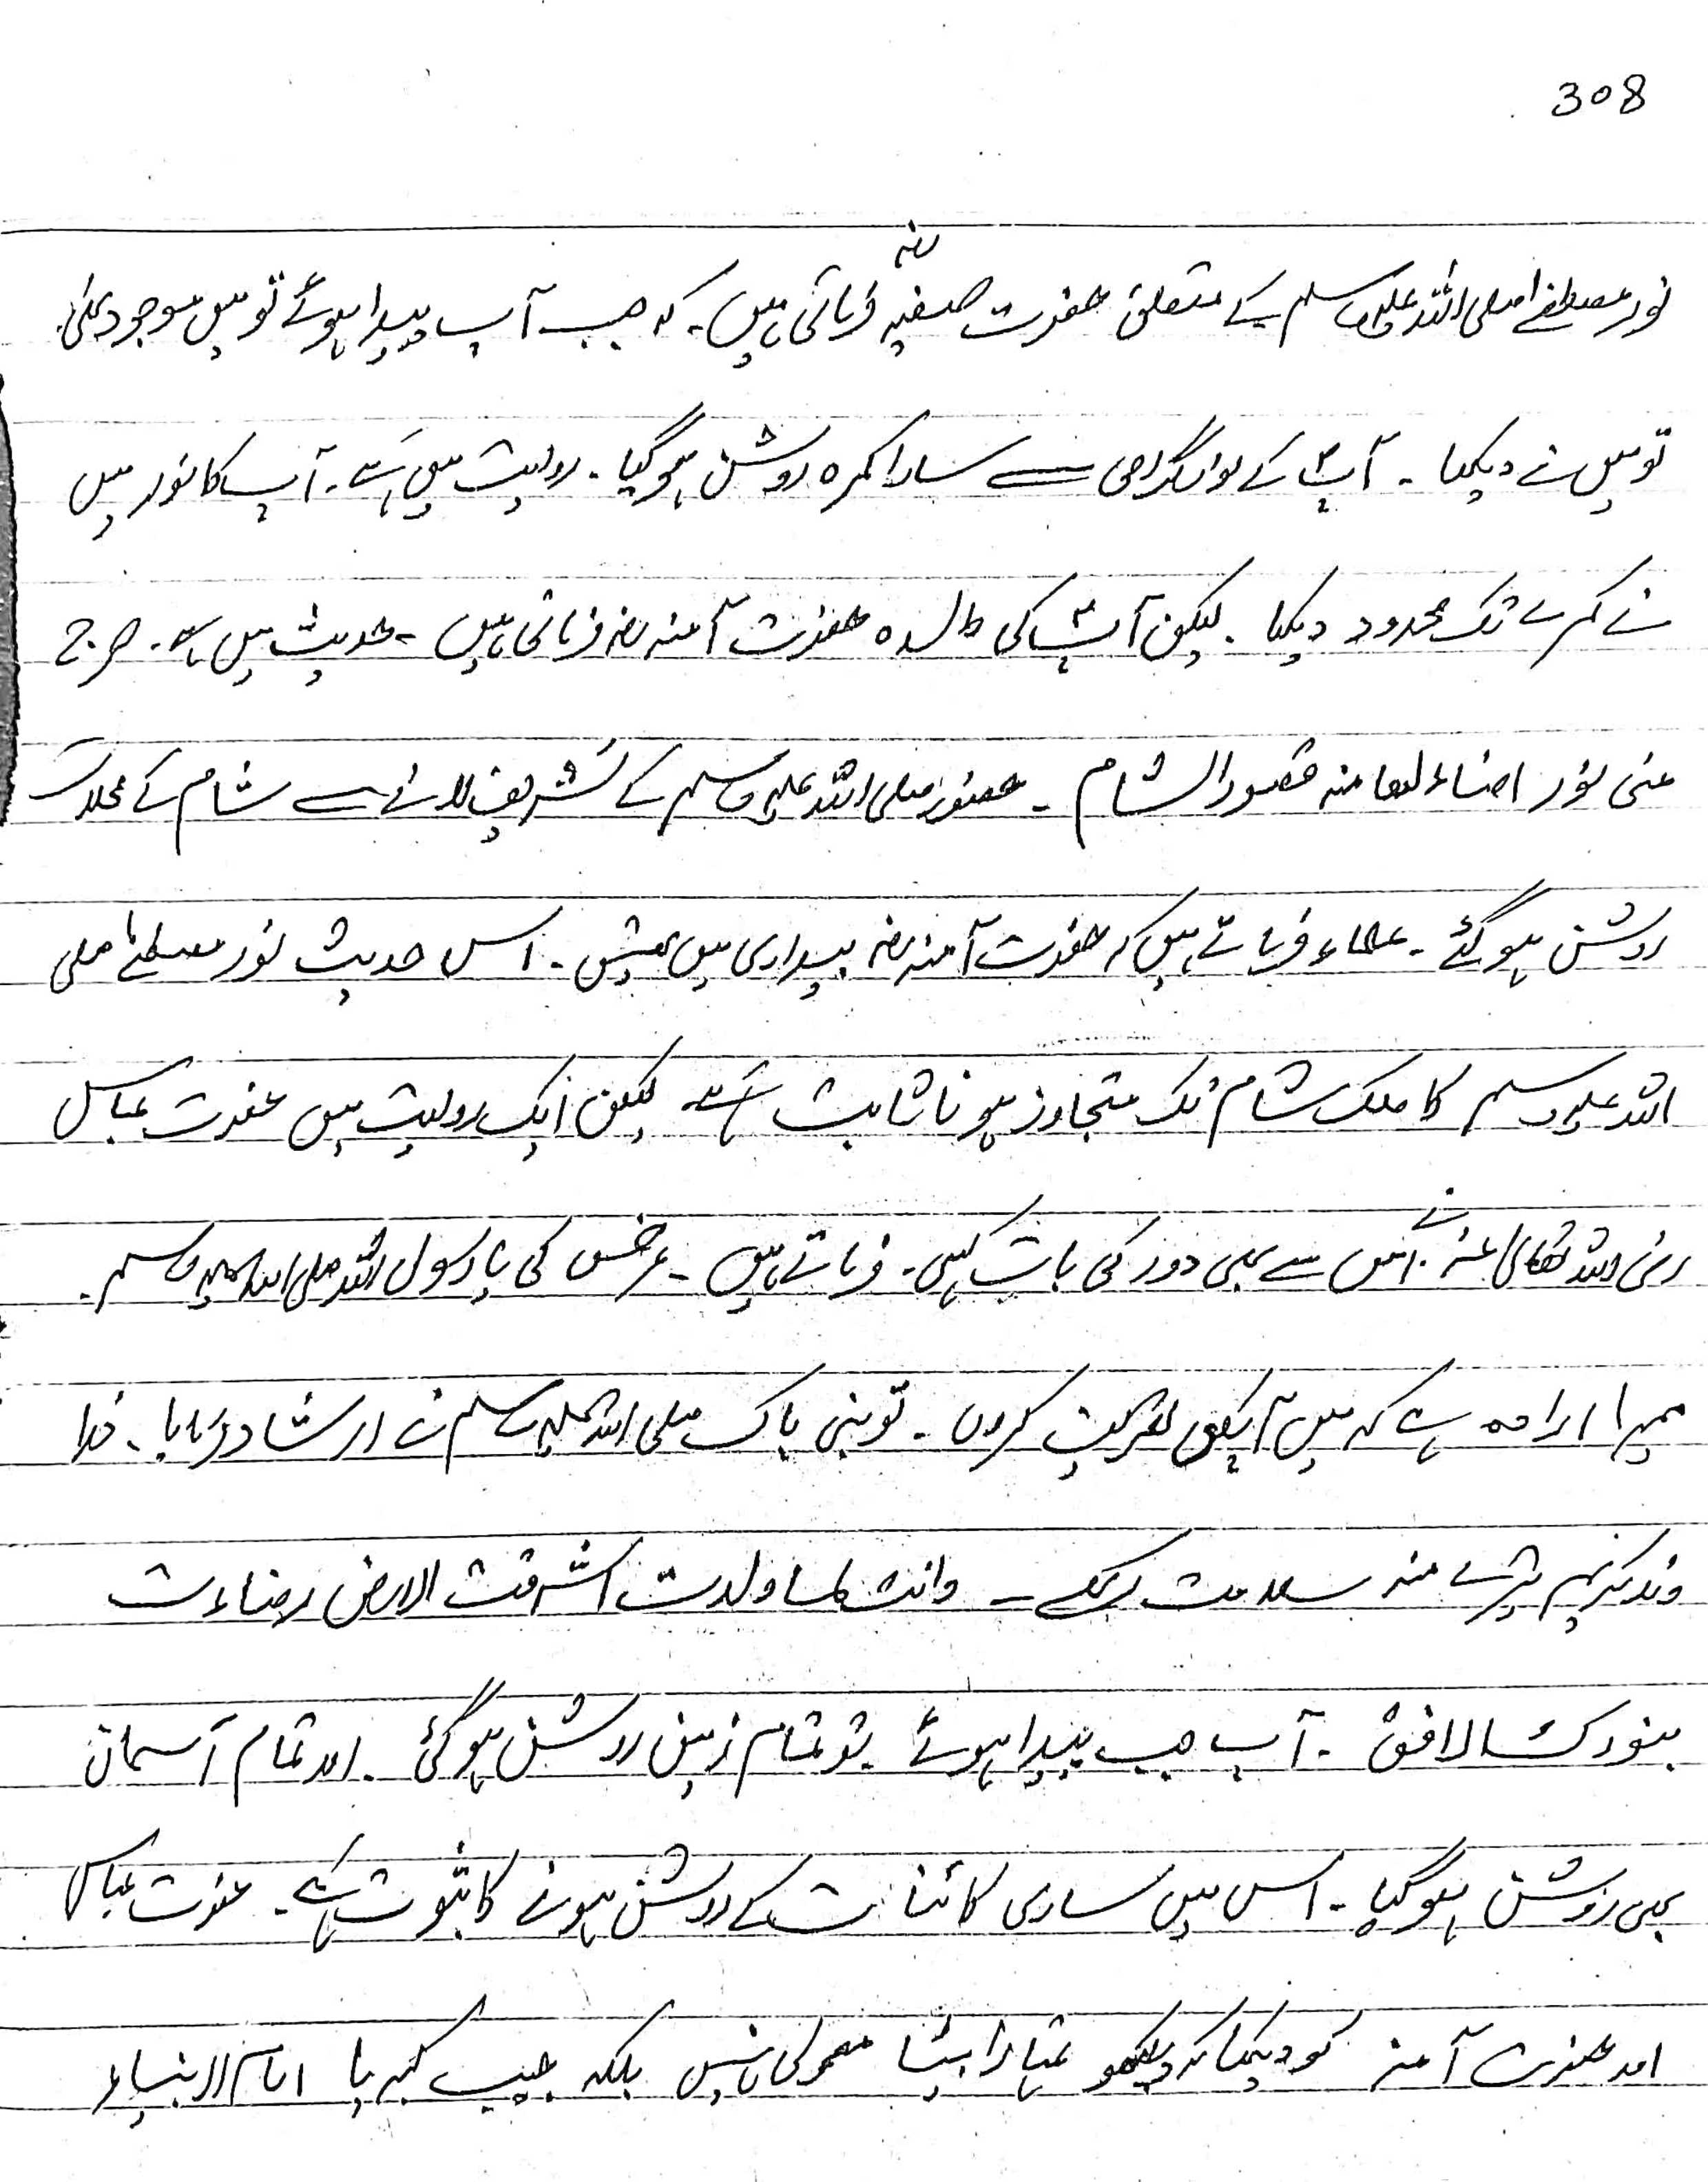 308
نور مصطفےٰ صلی اللہ علیہ وسلم کے متعلق حضرت صفیہ رضہ فرماتی ہیں۔ کہ جب آپ پیدا ہوئے تو میں موجود تھی۔
تو میں نے دیکھا ۔ آپؐ کے نور گرامی سے سارا کمرہ روشن ہو گیا ۔ روایت میں ہے۔ آپ کا نور میں
نے کمرے تک محدود دیکھا ۔ لیکن آپؐ کی والدہ حضرت آمنہ رضہ فرماتی ہیں ۔ حدیث میں ہے ۔ خرج
منی نور اضاء لھا منہ قصور الشام ۔ حضور صلی اللہ علیہ وسلم کے تشریف لانے سے شام کے محلات
روشن ہو گئے ۔ علماء فرماتے ہیں کہ حضرت آمنہ رضہ بیداری میں تھیں ۔ اس حدیث نور مصطفےٰ صلی
اللہ علیہ وسلم کا ملک شام تک متجاوز ہونا ثابت ہے۔ لیکن ایک روایت میں حضرت عباس
رضی اللہ تعالی عنہ نے اس سے بھی دور کی بات کہی ۔ فرماتے ہیں ۔ عرض کی یا رسول اللہ صلی اللہ علیہ وسلم ۔
میرا ارادہ ہے کہ میں آپکی تعریف کروں ۔ تو نبی پاک صلی اللہ علیہ وسلم نے ارشاد فرمایا ۔ خدا
وند کریم تیرے منہ سلامت رکھے ۔ وانت لما ولدت اشرقت الارض وضاءت
بنورک الافق ۔ آپ جب پیدا ہوئے تو تمام زمین روشن ہو گئی ۔ اور تمام آسمان
بھی روشن ہو گیا ۔ اس میں ساری کائنات کے روشن ہونے کا ثبوت ہے۔ حضرت عباس
اور حضرت آمنہ کو دیکھا کہ دیکھو تمہارا بیٹا معمولی نہیں بلکہ حبیب کبریا امام الانبیاء